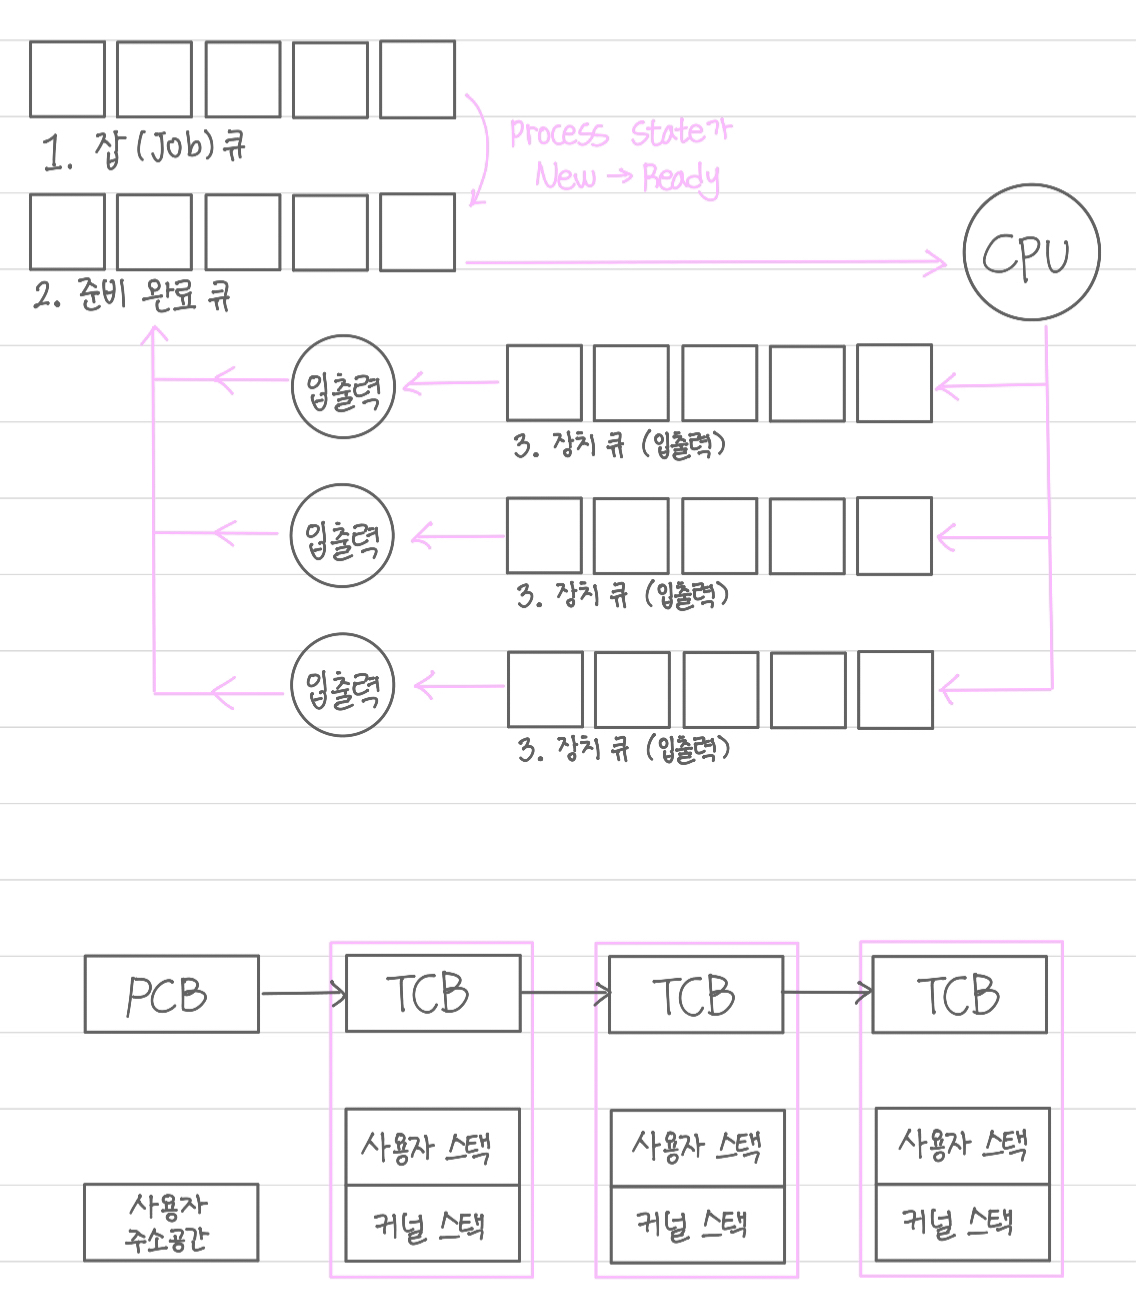 1. 잡 (Job) 큐
Process State가
New → Ready
2. 준비 완료 큐
CPU
입출력
3. 장치 큐 (입출력)
입출력
3. 장치 큐 (입출력)
입출력
3. 장치 큐 (입출력)
PCB
TCB
TCB
TCB
사용자
주소공간
사용자 스택
커널 스택
사용자 스택
커널 스택
사용자 스택
커널 스택